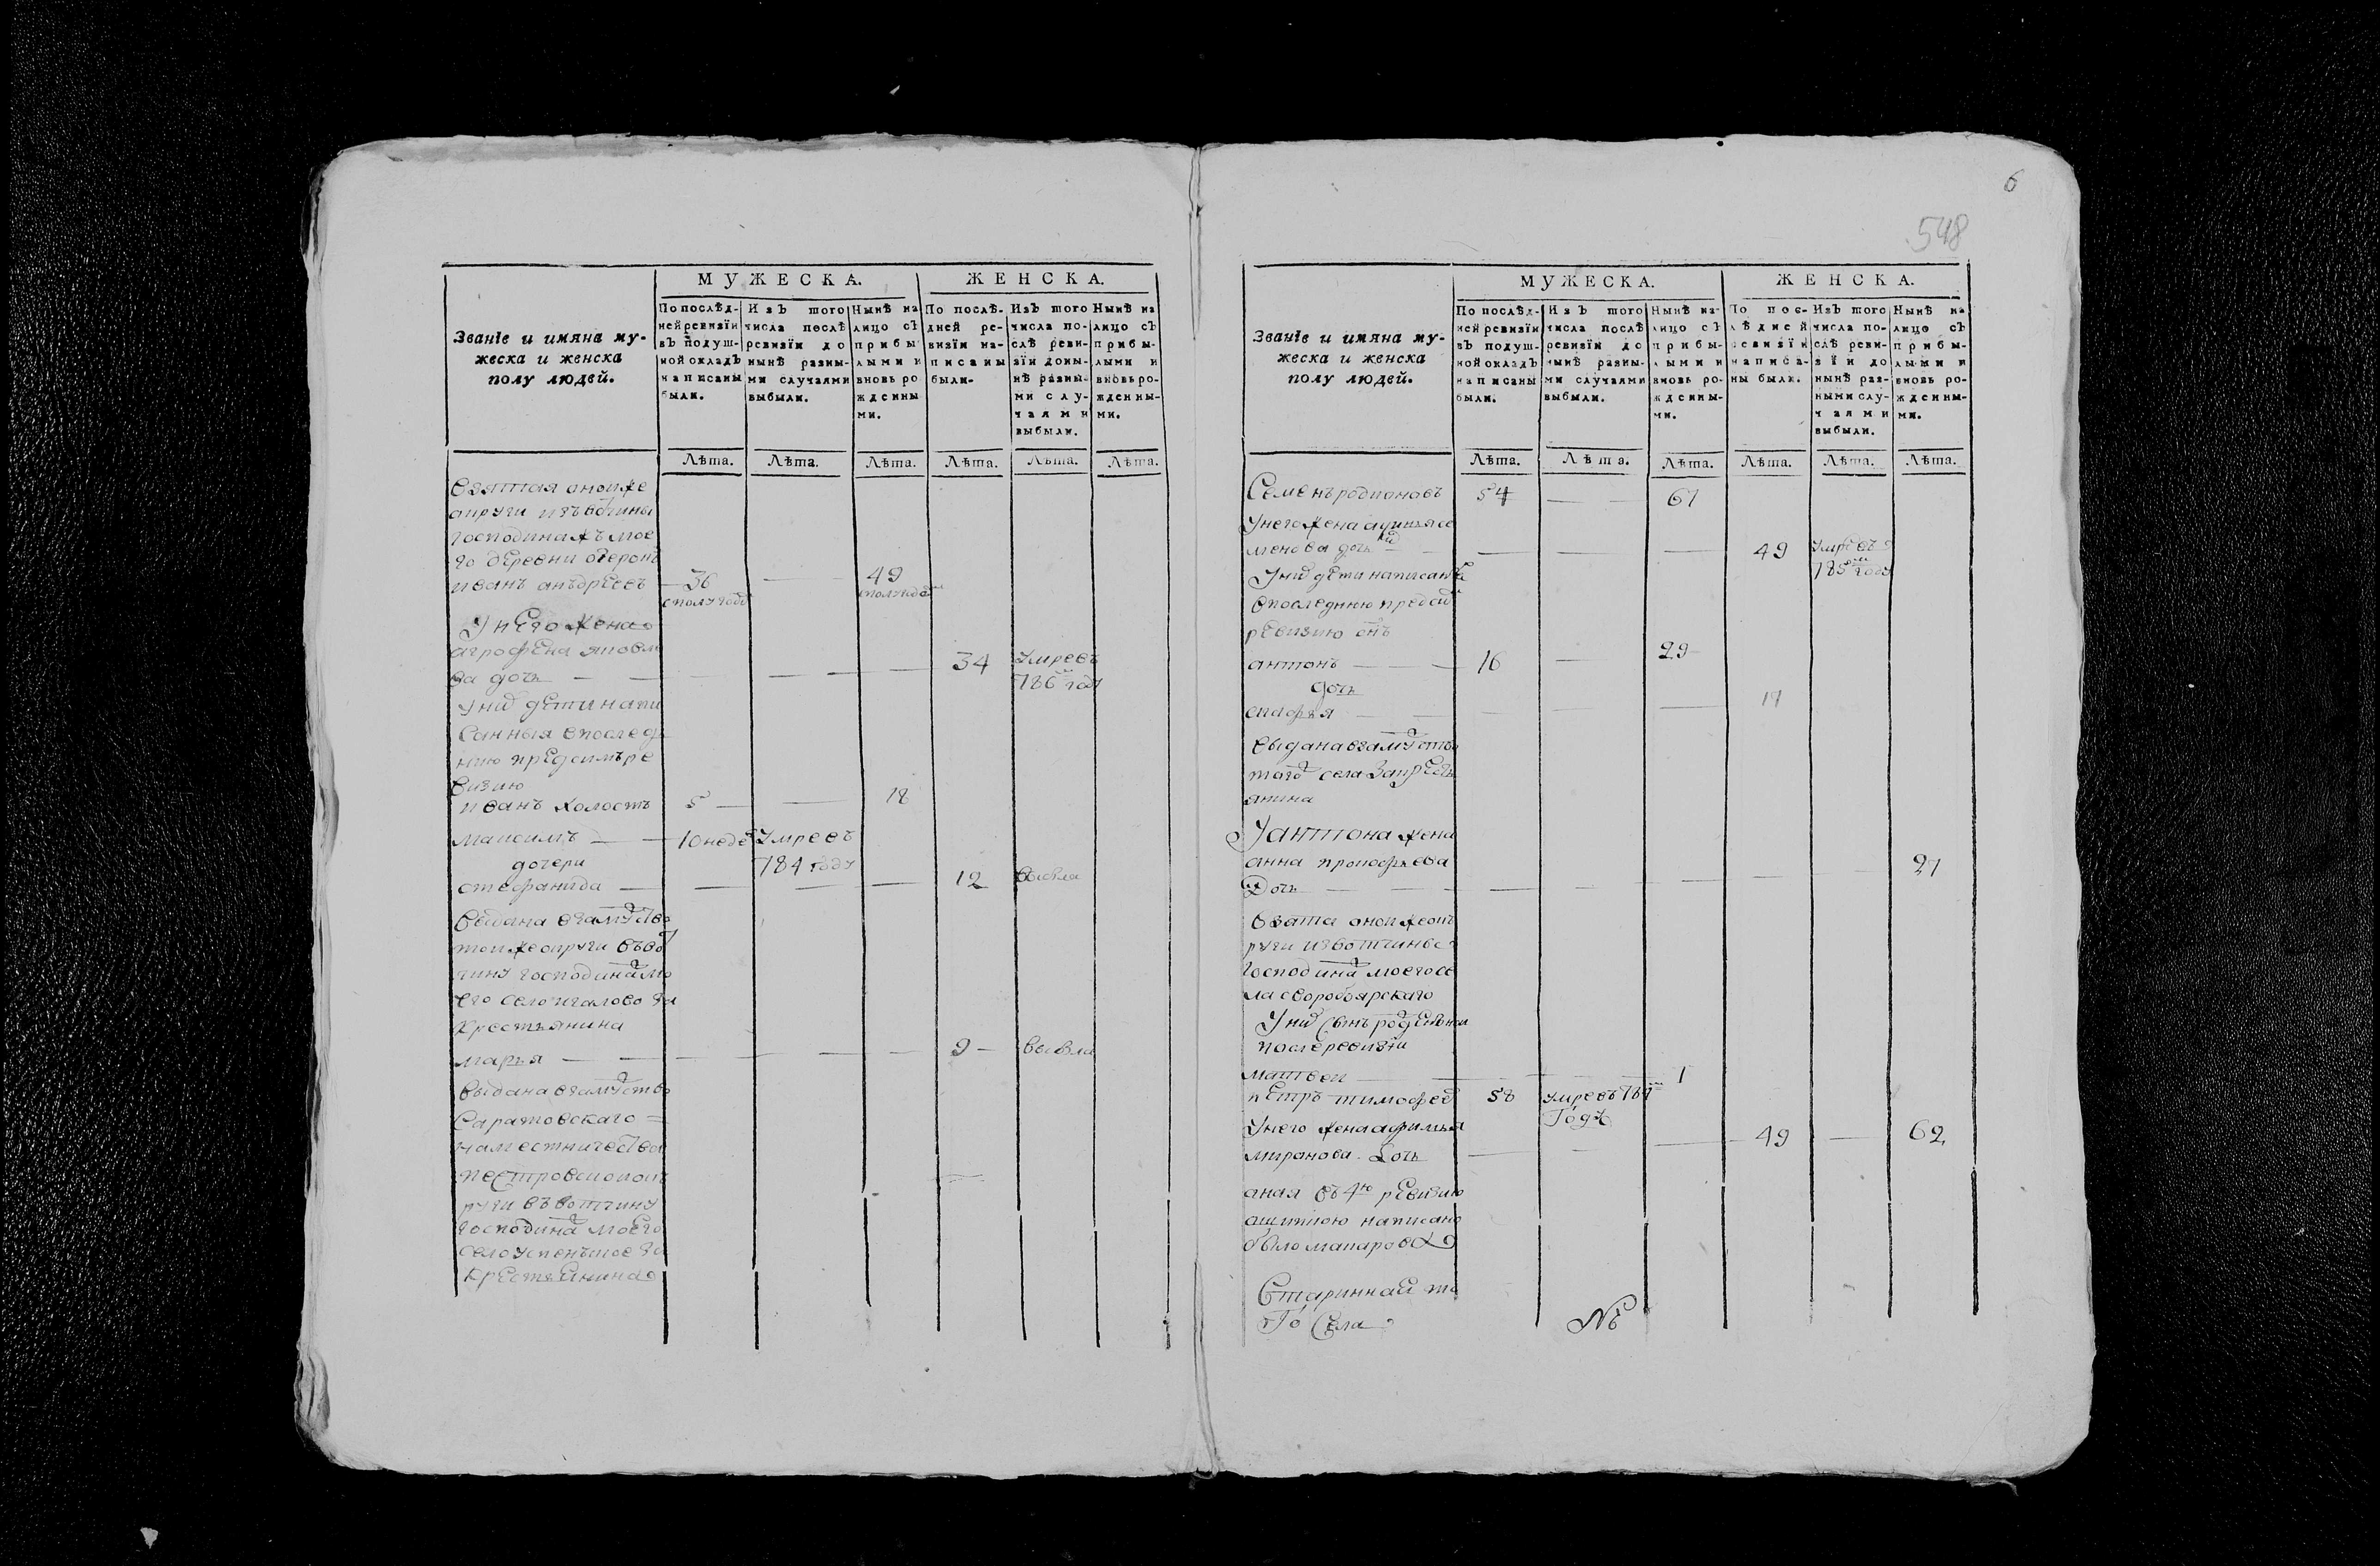 МУЖЕСКА.
ЖЕНСКА.
Званіе и имяна му-
жеска и женска
полу людей.
По послѣд-
ней ревизїи
въ подуш-
ной окладъ
написаны
были.
Изъ того
числа послѣ
ревизїи до
нынѣ разны-
ми случаями
выбыли.
Нынѣ на
лицо съ
прибы
лыми и
вновь ро
жденны
ми.
По послѣ-
дней ре-
визїи на-
писаны
были.
Изъ того
числа по-
слѣ реви-
зїи доны-
нѣ разны-
ми слу-
чаями
выбыли.
Нынѣ на
лицо съ
прибы-
лыми и
вновь ро-
жденны-
ми.
Лѣта. Лѣта. Лѣта. Лѣта. Лѣта. Лѣта.
взятая оноиже
округи изъ вотчины
господина жъ мое
го деревни
иванъ андреевъ 36 49
сполугодо сполугодо
У него жена
агрофена яковле
ва дочь 34 умре въ
786 году
У них дети напи
санныя в послед
нию пред сим ре
визию
иванъ холостъ 5 18
максимъ 10 неде умре въ
784 году
дочери
стефанида 12 выбыла
выдана взамуство
той же округи въ вот
чину господина мо
его село игалово за
крестьянина
марья 9 выбыла
выдана взамуство
Саратовскаго
наместничества
петровскои ок
руги въ вотчину
господина моего
село успенъское за
крестьянина
6
548
МУЖЕСКА.
ЖЕНСКА.
Званіе и имяна му-
жеска и женска
полу людей.
По послѣд-
ней ревизїи
въ подуш-
ной окладъ
написаны
были.
Изъ того
числа послѣ
ревизїи до
нынѣ разны-
ми случаями
выбыли.
Нынѣ на-
лицо съ
прибы-
лыми и
вновь ро-
жденны-
ми.
По пос-
лѣдней
ревизїи
написа-
ны были.
Изъ того
числа по-
слѣ реви-
зїи до
нынѣ раз-
ными слу-
чаями
выбыли.
Нынѣ на
лицо съ
прибы-
лыми и
вновь ро-
жденны-
ми.
Лѣта. Лѣта. Лѣта. Лѣта. Лѣта. Лѣта.
Семенъ родионовъ 54 67
У него жена акилина се
менова дочь 49 умре въ
785 году
У них дети написан
в последнюю пред сим
ревизию сынъ
антонъ 16 29
дочь
софья 17
выдана взамуство
того села за крестья
янина
У антона жена
анна прокофьева 27
Дочь
взята оной же ок
руги из вотчины
господина моего се
ла своробоярскаго
У них сынъ рожденной
после ревизии
матвеи 1
петръ тимофеевъ 58 умре въ 787
Году
У него жена афимья
миранова Дочь 49 62
оная въ 4ю ревизию
ошипкою написано
было макарова
Стариннай то
го Села
№